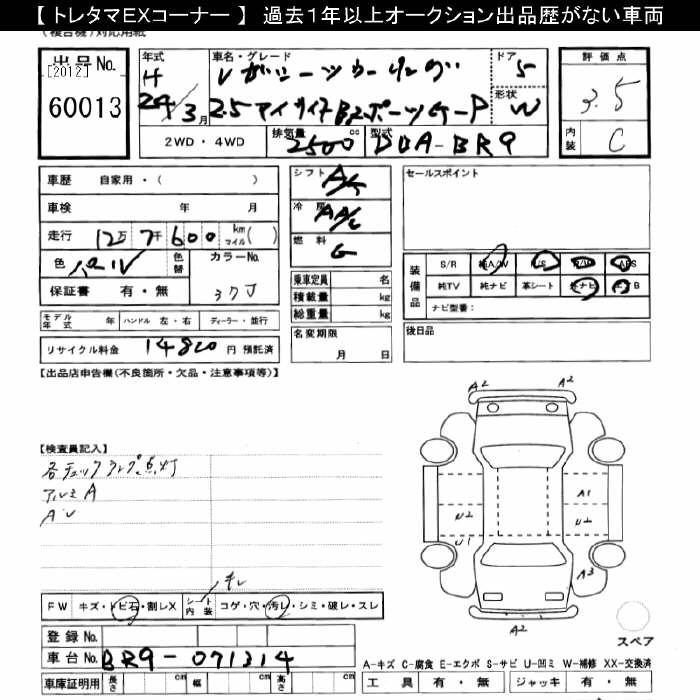 【 トレタマＥＸコーナー 】 過去１年以上オークション出品歴がない車両
(複合機)対応用紙
出品No.
[2012]
60013
年式
H
24/3月
車名・グレード
レガシーツーリング
2.5アイサイトBスポーツG-P
ドア
5
形状
W
評価点
3.5
内装
C
2WD・4WD
排気量
2500 cc
型式
DBA-BR9
車歴 自家用・( )
車検 年 月
走行 12万 7千 600 km マイル( )
色 パール
色替
カラーNo.
37J
保証書 有・無
シフト
A/T
冷房
AAC
燃料
G
乗車定員 名
積載量 kg
総重量 kg
名変期限
月 日
セールスポイント
装備品
S/R 純A/W P/S P/W ABS
純TV 純ナビ 革シート 社ナビ エアB
ナビ型番:
後日品
モデル年式 年 ハンドル 左・右 ディーラー・並行
リサイクル料金 14820 円 預託済
【出品店申告欄(不良箇所・欠品・注意事項等)】
【検査員記入】
各チェックランプ点灯
アルミA
AU
キレ
FW キズ・トビ石・割レX シート内装 コゲ・穴・汚レ・シミ・破レ・スレ
登録No.
車台No. BR9-071314
車庫証明用 長さ cm 幅 cm 高さ cm
A2
A2
A1
U2
U2
U1
A3
A2
スペア
A-キズ C-腐食 E-エクボ S-サビ U-凹ミ W-補修 XX-交換済
工具 有・無 ジャッキ 有・無